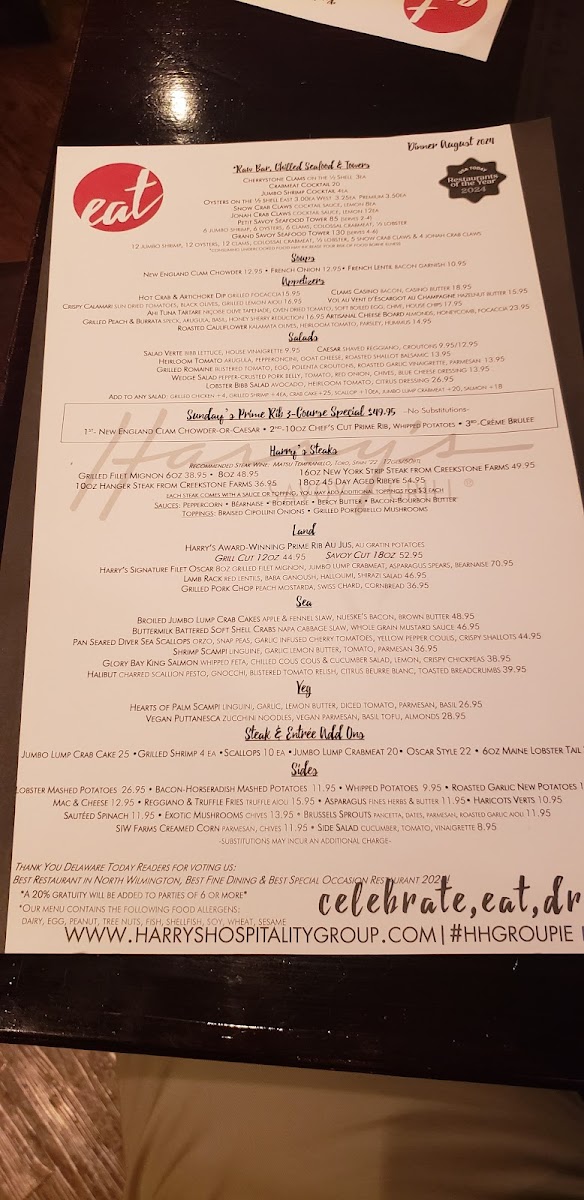 eat
eat
Dinner August 2024
Raw Bar, Chilled Seafood & Towers
Cherrystone Clams on the ½ shell 3ea
Crabmeat Cocktail 20
Jumbo Shrimp Cocktail 4ea
Oysters on the ½ Shell East 3.00ea West 3.25ea Premium 3.50ea
Snow Crab Claws cocktail sauce, lemon 8ea
Jonah Crab Claws cocktail sauce, lemon 12ea
Petit Savoy Seafood Tower 85 (serves 2-4)
6 jumbo shrimp, 6 oysters, 6 clams, colossal crabmeat, ½ lobster
Grand Savoy Seafood Tower 130 (serves 4-6)
12 jumbo shrimp, 12 oysters, 12 clams, colossal crabmeat, ½ lobster, 5 snow crab claws & 4 jonah crab claws
Restaurants of the Year 2024
Soups
New England Clam Chowder 12.95 • French Onion 12.95 • French Lentil bacon garnish 10.95
Appetizers
Hot Crab & Artichoke Dip grilled focaccia 15.95 Clams Casino bacon, casino butter 18.95
Crispy Calamari sun dried tomatoes, black olives, grilled lemon aioli 16.95 Vos au Vent d'Escargot au Champagne hazelnut butter 15.95
Ahi Tuna Tartare niçoise olive tapenade, oven dried tomato, soft boiled egg, chive, house chips 17.95
Grilled Peach & Burrata speck, arugula, basil, honey-sherry reduction 16.95 Artisanal Cheese Board almonds, honeycomb, focaccia 23.95
Roasted Cauliflower kalamata olives, heirloom tomato, parsley, hummus 14.95
Salads
Salad Verte bibb lettuce, house vinaigrette 9.95 Caesar shaved reggiano, croutons 9.95/12.95
Heirloom Tomato arugula, pepperoncini, goat cheese, roasted shallot balsamic 13.95
Grilled Romaine blistered tomato, egg, polenta croutons, roasted garlic vinaigrette, parmesan 13.95
Wedge Salad pepper-crusted pork belly, tomato, red onion, chives, blue cheese dressing 13.95
Lobster Bibb Salad avocado, heirloom tomato, citrus dressing 26.95
Add to any salad grilled chicken +4, grilled shrimp +4ea, crab cake +25, scallop +10ea, jumbo lump crabmeat +20, salmon +18
Sunday's Prime Rib 3-Course Special $49.95 -No Substitutions-
1st- New England Clam Chowder-or-Caesar • 2nd-10oz Chef's Cut Prime Rib, Whipped Potatoes • 3rd-Crème Brulee
Harry's
Harry's Steaks
Recommended Steak Wine: Matsu Tempranillo, Toro, Spain '22 12gls/50btl
Grilled Filet Mignon 6oz 38.95 • 8oz 48.95 16oz New York Strip Steak from Creekstone Farms 49.95
10oz Hanger Steak from Creekstone Farms 36.95 18oz 45 Day Aged Ribeye 54.95
each steak comes with a sauce or topping, you may add additional toppings for $3 each
Sauces: Peppercorn • Béarnaise • Bordelaise • Bercy Butter • Bacon-Bourbon Butter
Toppings: Braised Cipollini Onions • Grilled Portobello Mushrooms
Land
Harry's Award-Winning Prime Rib Au Jus, au gratin potatoes
Grill Cut 12oz 44.95 Savoy Cut 18oz 52.95
Harry's Signature Filet Oscar 8oz grilled filet mignon, jumbo lump crabmeat, asparagus spears, bearnaise 70.95
Lamb Rack red lentils, baba ganoush, halloumi, shirazi salad 46.95
Grilled Pork Chop peach mostarda, swiss chard, cornbread 36.95
Sea
Broiled Jumbo Lump Crab Cakes apple & fennel slaw, nueske's bacon, brown butter 48.95
Buttermilk Battered Soft Shell Crabs napa cabbage slaw, whole grain mustard sauce 46.95
Pan Seared Diver Sea Scallops orzo, snap peas, garlic infused cherry tomatoes, yellow pepper coulis, crispy shallots 44.95
Shrimp Scampi linguine, garlic lemon butter, tomato, parmesan 36.95
Glory Bay King Salmon whipped feta, chilled cous cous & cucumber salad, lemon, crispy chickpeas 38.95
Halibut charred scallion pesto, gnocchi, blistered tomato relish, citrus beurre blanc, toasted breadcrumbs 39.95
Veg
Hearts of Palm Scampi linguini, garlic, lemon butter, diced tomato, parmesan, basil 26.95
Vegan Puttanesca zucchini noodles, vegan parmesan, basil tofu, almonds 28.95
Steak & Entrée Add Ons
Jumbo Lump Crab Cake 25 • Grilled Shrimp 4 ea • Scallops 10 ea • Jumbo Lump Crabmeat 20 • Oscar Style 22 • 6oz Maine Lobster Tail
Sides
Lobster Mashed Potatoes 26.95 • Bacon-Horseradish Mashed Potatoes 11.95 • Whipped Potatoes 9.95 • Roasted Garlic New Potatoes 1
Mac & Cheese 12.95 • Reggiano & Truffle Fries truffle aioli 15.95 • Asparagus fines herbs & butter 11.95 • Haricots Verts 10.95
Sautéed Spinach 11.95 • Exotic Mushrooms chives 13.95 • Brussels Sprouts pancetta, dates, parmesan, roasted garlic aioli 11.95
SIW Farms Creamed Corn parmesan, chives 11.95 • Side Salad cucumber, tomato, vinaigrette 8.95
-Substitutions may incur an additional charge-
Thank You Delaware Today Readers for voting us:
Best Restaurant in North Wilmington, Best Fine Dining & Best Special Occasion Restaurant 2024!
*A 20% gratuity will be added to parties of 6 or more*
*Our menu contains the following food allergens:
dairy, egg, peanut, tree nuts, fish, shellfish, soy, wheat, sesame
celebrate, eat, dr
www.harryshospitalitygroup.com | #HHGROUPIE